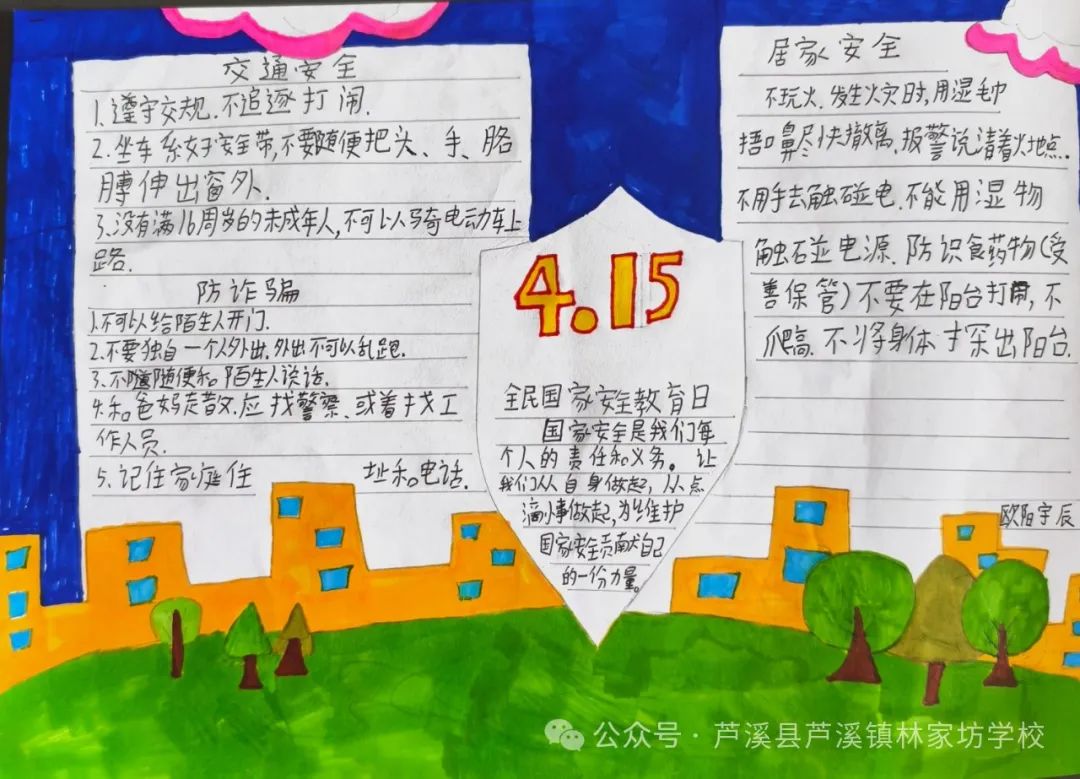 交通安全
1.遵守交规.不追逐打闹.
2.坐车系好安全带,不要随便把头、手、胳
膊伸出窗外.
3.没有满16周岁的未成年人,不可以骑电动车上
路.
防诈骗
1.不可以给陌生人开门.
2.不要独自一个人外出.外出不可以乱跑.
3.不随便和陌生人说话.
4.和爸妈走散.应找警察、或着找工
作人员.
5.记住家庭住 址和电话.
4.15
全民国家安全教育日
国家安全是我们每
个人的责任和义务。让
我们从自身做起,从点
滴小事做起,为维护
国家安全贡献自己
的一份力量。
居家安全
不玩火.发生火灾时,用湿毛巾
捂口鼻尽快撤离.报警说清着火地点.
不用手去触碰电.不能用湿物
触碰电源.防识食药物(受
善保管)不要在阳台打闹,不
爬高.不将身体探出阳台.
欧阳宇辰
公众号·芦溪县芦溪镇林家坊学校